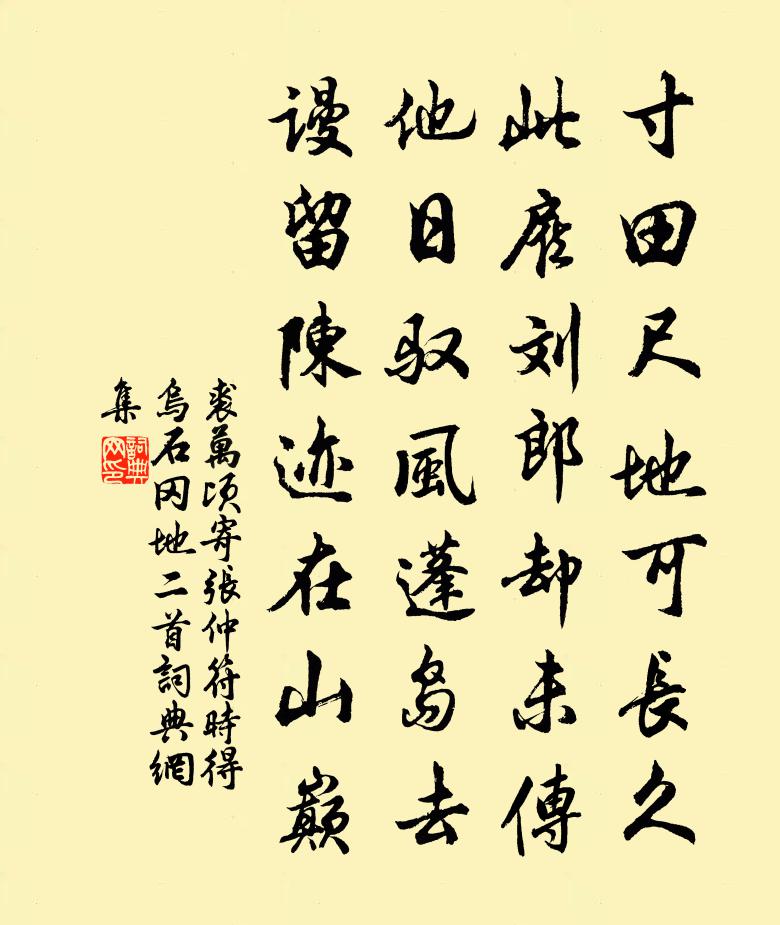 寸田尺地可長久
此刘郎却未傳
他日驭風蓬島去
謾留陳迹在山巔
裘萬頃寄張仲符時得
烏石冈地二首詞典網
集
詞典
网印